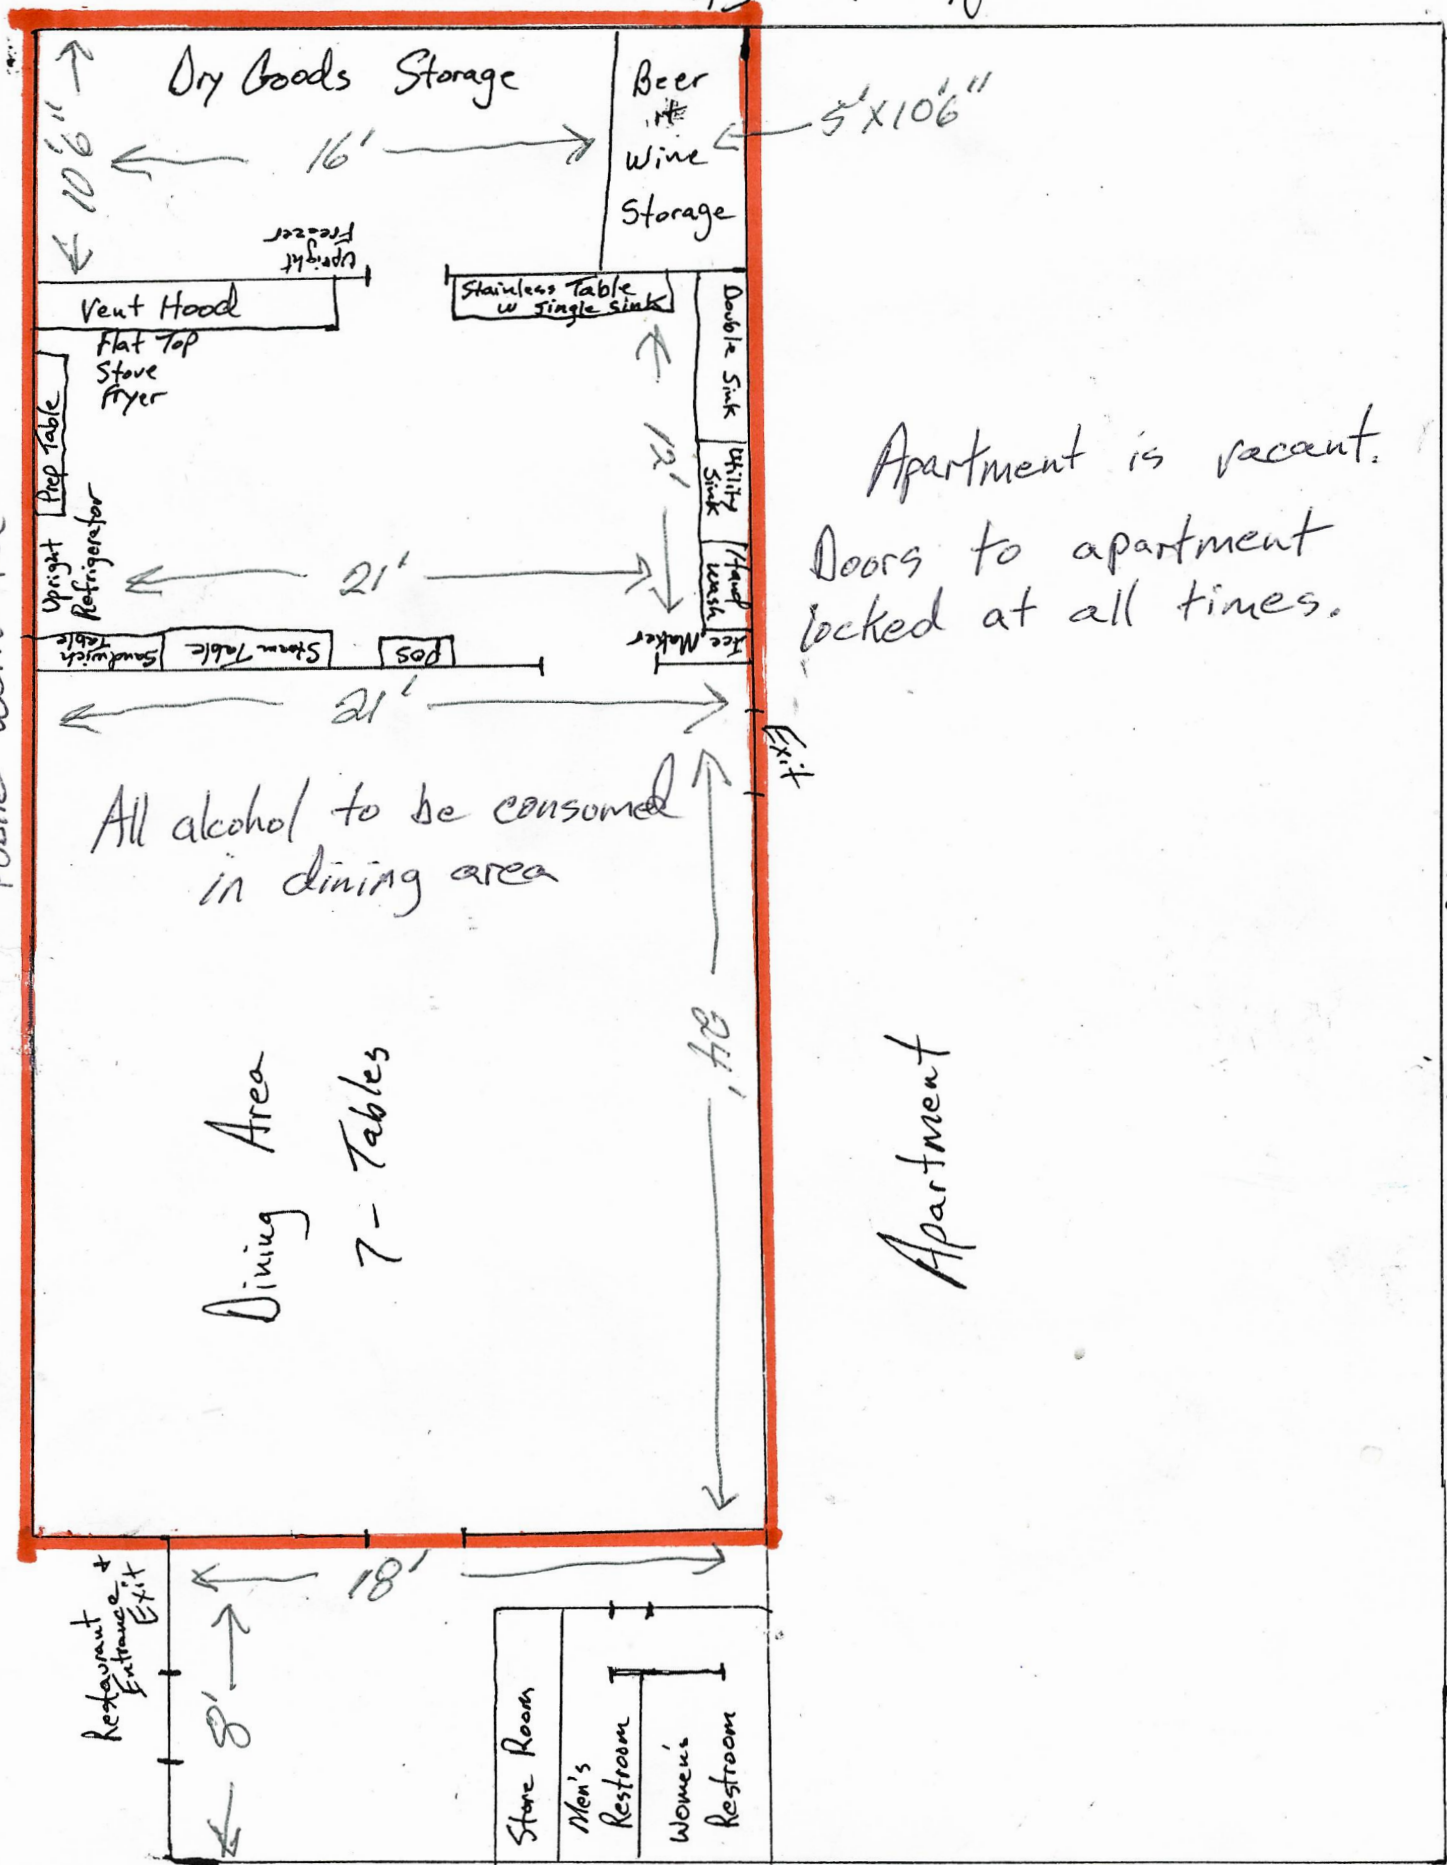 Dry Goods Storage
10'6"
16'
Beer
Wine
Storage
5'X10'6"
Upright
Freezer
Vent Hood
Flat Top
Stove
Fryer
Stainless Table
w Single Sink
Double Sink
Utility
Sink
Hand
Wash
Ice Maker
12'
Prep Table
Upright
Refrigerator
21'
Sandwich
Table
Steam Table
POS
21'
Exit
Apartment is vacant.
Doors to apartment
locked at all times.
All alcohol to be consumed
in dining area
24'
Dining Area
7- Tables
Apartment
18'
Restaurant
Entrance +
Exit
8'
Store Room
Men's
Restroom
Women's
Restroom